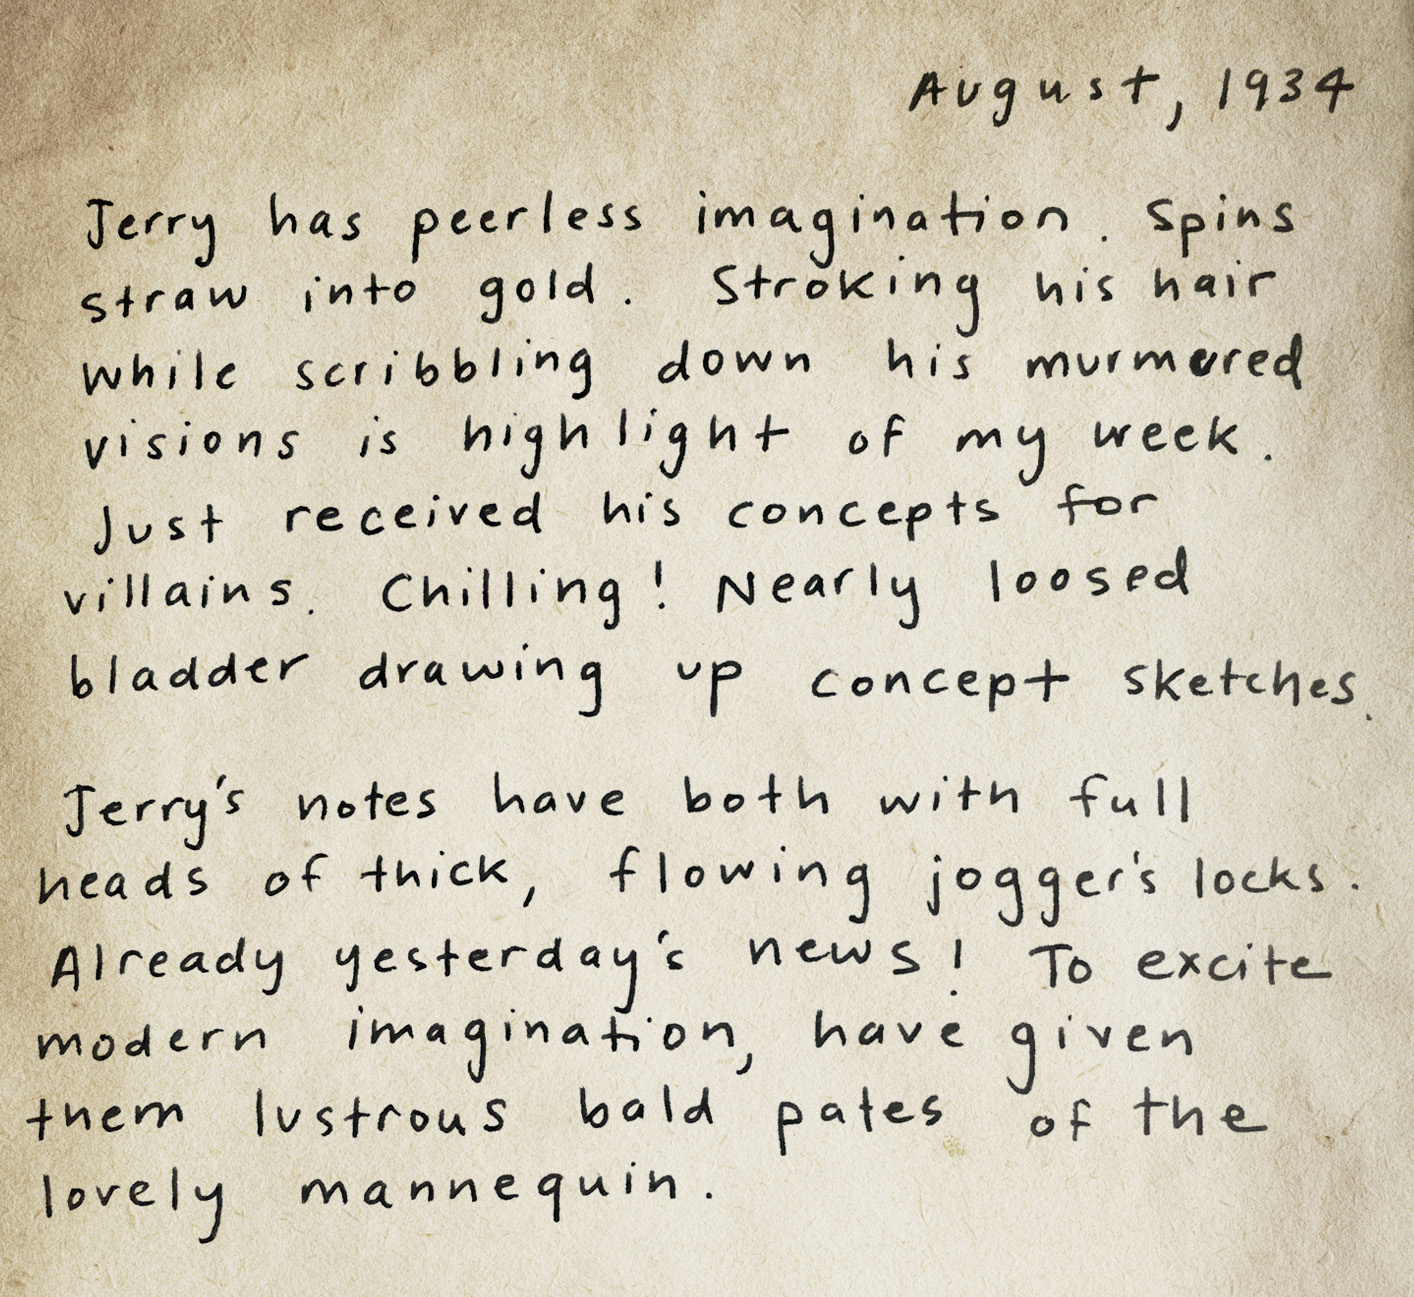 August, 1934
Jerry has peerless imagination. Spins
straw into gold. Stroking his hair
while scribbling down his murmured
visions is highlight of my week.
Just received his concepts for
villains. Chilling! Nearly loosed
bladder drawing up concept sketches.
Jerry's notes have both with full
heads of thick, flowing jogger's locks.
Already yesterday's news! To excite
modern imagination, have given
them lustrous bald pates of the
lovely mannequin.